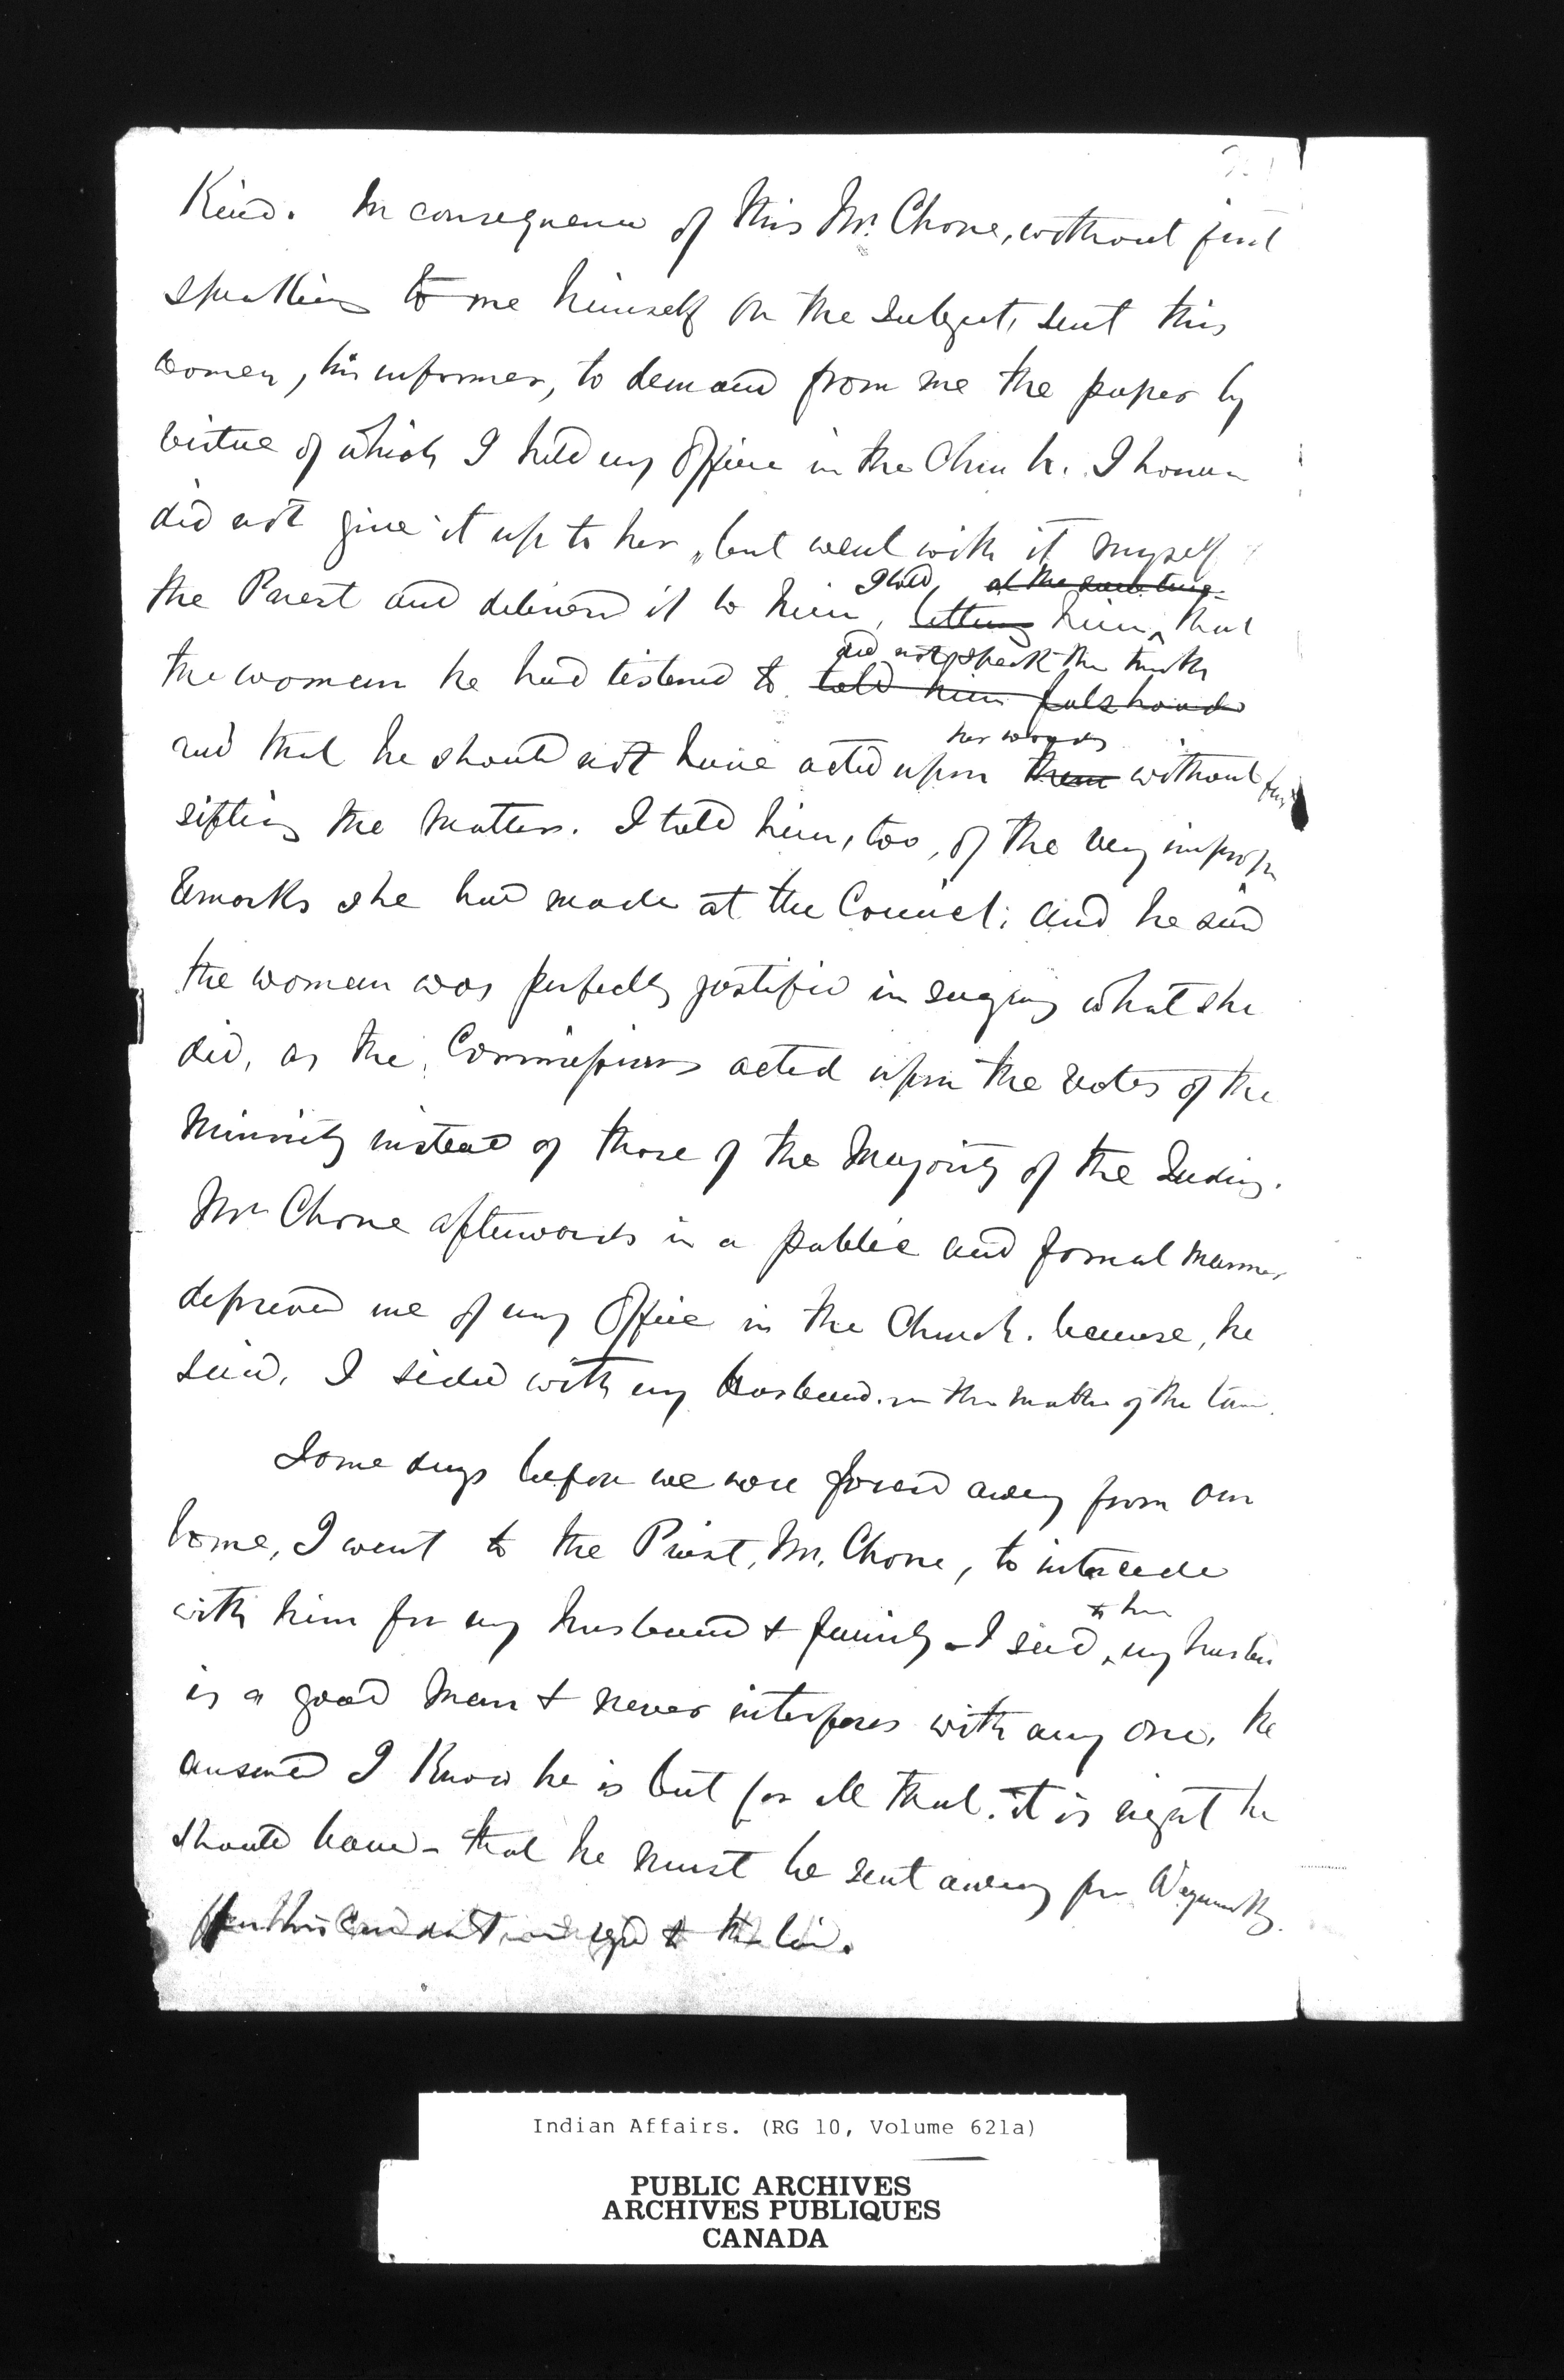 Kind. In consequence of this Mr. Chone, without first
speaking to me himself on the subject, sent this
woman, his informer, to demand from me the paper by
virtue of which I held my Office in the Church. I however
did not give it up to her, but went with it myself
the Priest and delivered it to him, I told, letting at the same time him, that
the woman he had listened to did not speak the truth told him falsehoods
and that he should not have acted upon her words them without first
sifting the matter. I told him, too, of the very improper
remarks she had made at the Council; and he said
the woman was perfectly justified in saying what she
did, as the Commissioners acted upon the votes of the
Minority instead of those of the Majority of the Indians.
Mr Chone afterwards in a public and formal manner
deprived me of my Office in the Church. because, he
said, I sided with my husband. in the matter of the land.
Some days before we were forced away from our
home, I went to the Priest, Mr. Chone, to intercede
with him for my husband & family - I said to him my husband
is a good man & never interferes with any one, he
answered I know he is but for all that. it is right he
should leave - that he must be sent away from Wequemikong
the
Indian Affairs. (RG 10, Volume 621a)
PUBLIC ARCHIVES
ARCHIVES PUBLIQUES
CANADA